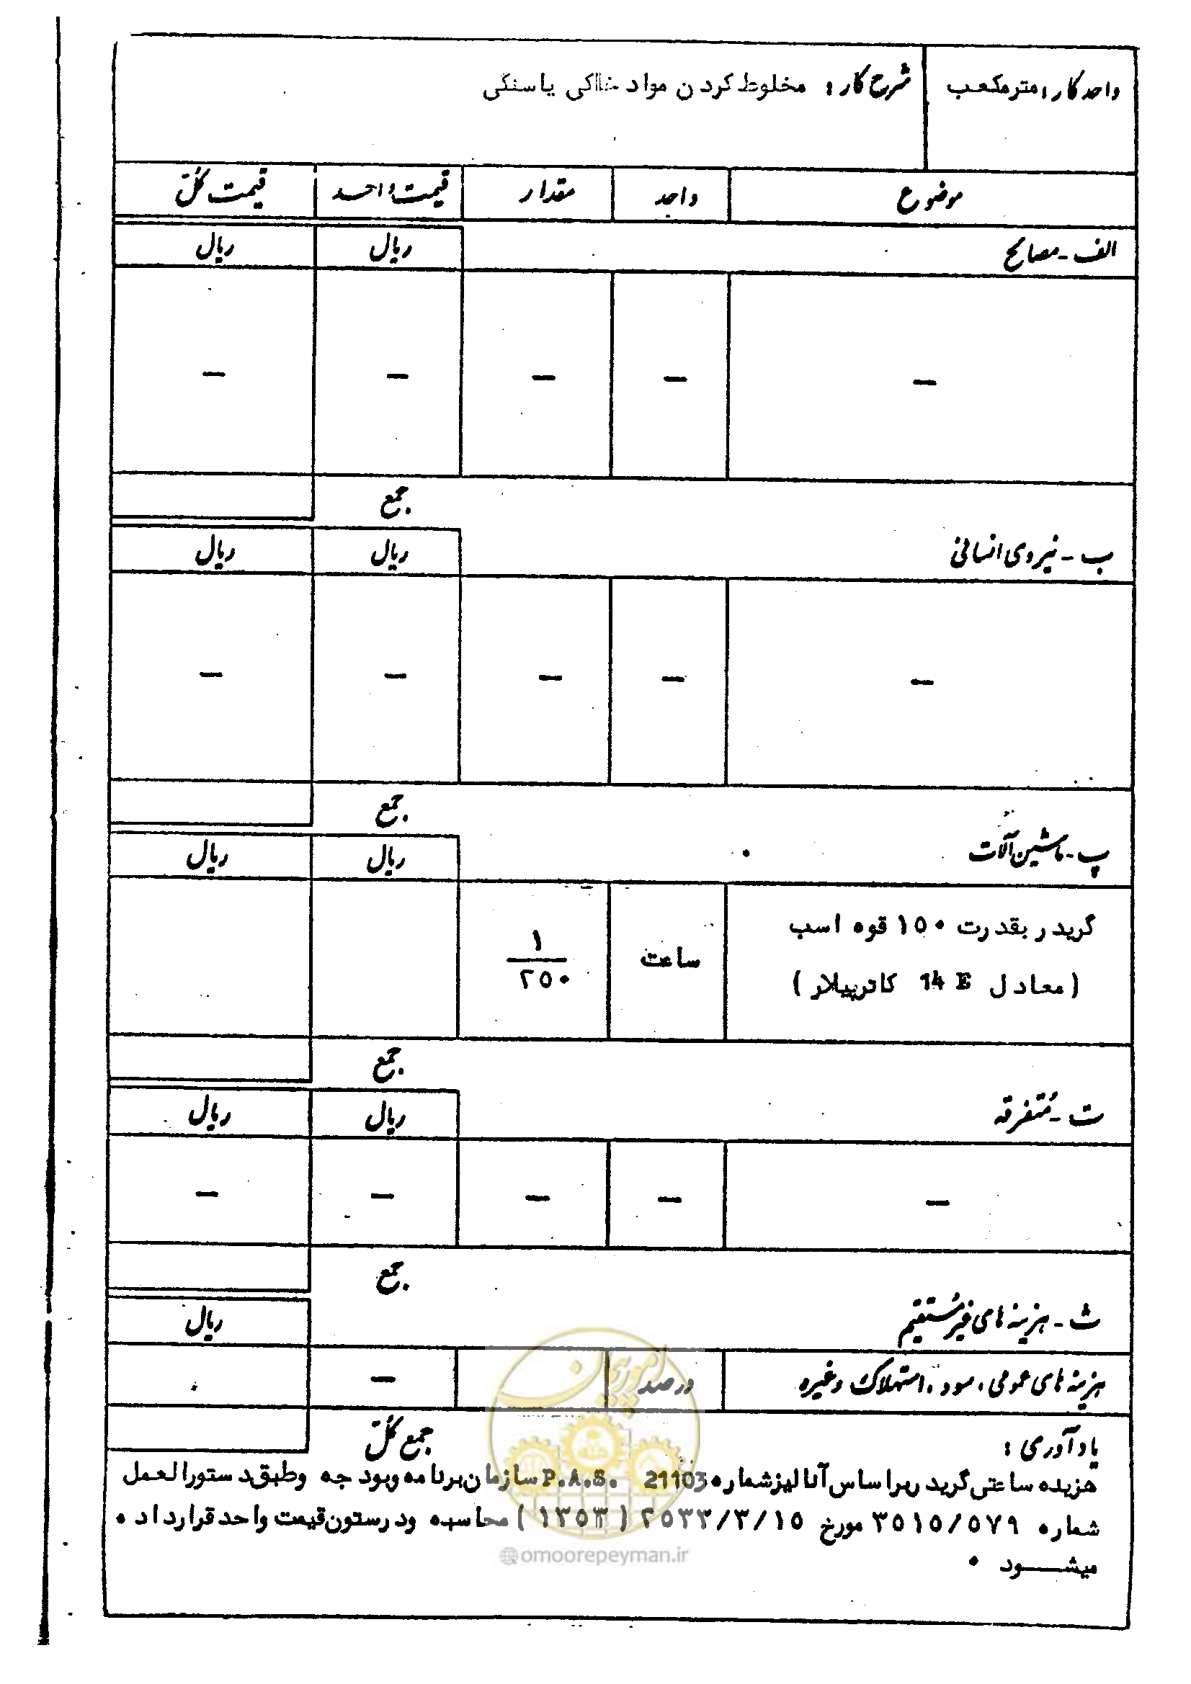 واحد کار : مترمکعب
شرح کار : مخلوط کردن مواد خاکی یا سنگی
موضوع واحد مقدار قیمت واحد قیمت کل
الف - مصالح ریال ریال
— — — — —
جمع
ب - نیروی انسانی ریال ریال
— — — — —
جمع
پ - ماشین آلات ریال ریال
گریدر بقدرت ۱۵۰ قوه اسب ساعت ۱/۲۵۰
(معادل 14 E کاترپیلار)
جمع
ت - متفرقه ریال ریال
— — — — —
جمع
ث - هزینه های غیر مستقیم ریال
هزینه های عمومی ، سود ، استهلاک وغیره درصد —
یادآوری : جمع کل
هزینه ساعتی گریدر براساس آنالیز شماره 21103 P.A.S. سازمان برنامه وبودجه وطبق دستورالعمل
شماره ۳۵۱۵/۵۷۹ مورخ ۲۵۳۳/۳/۱۵ (۱۳۵۳) محاسبه ودرستون قیمت واحد قرارداده
میشود .
امور پیمان
@omoorepeyman.ir